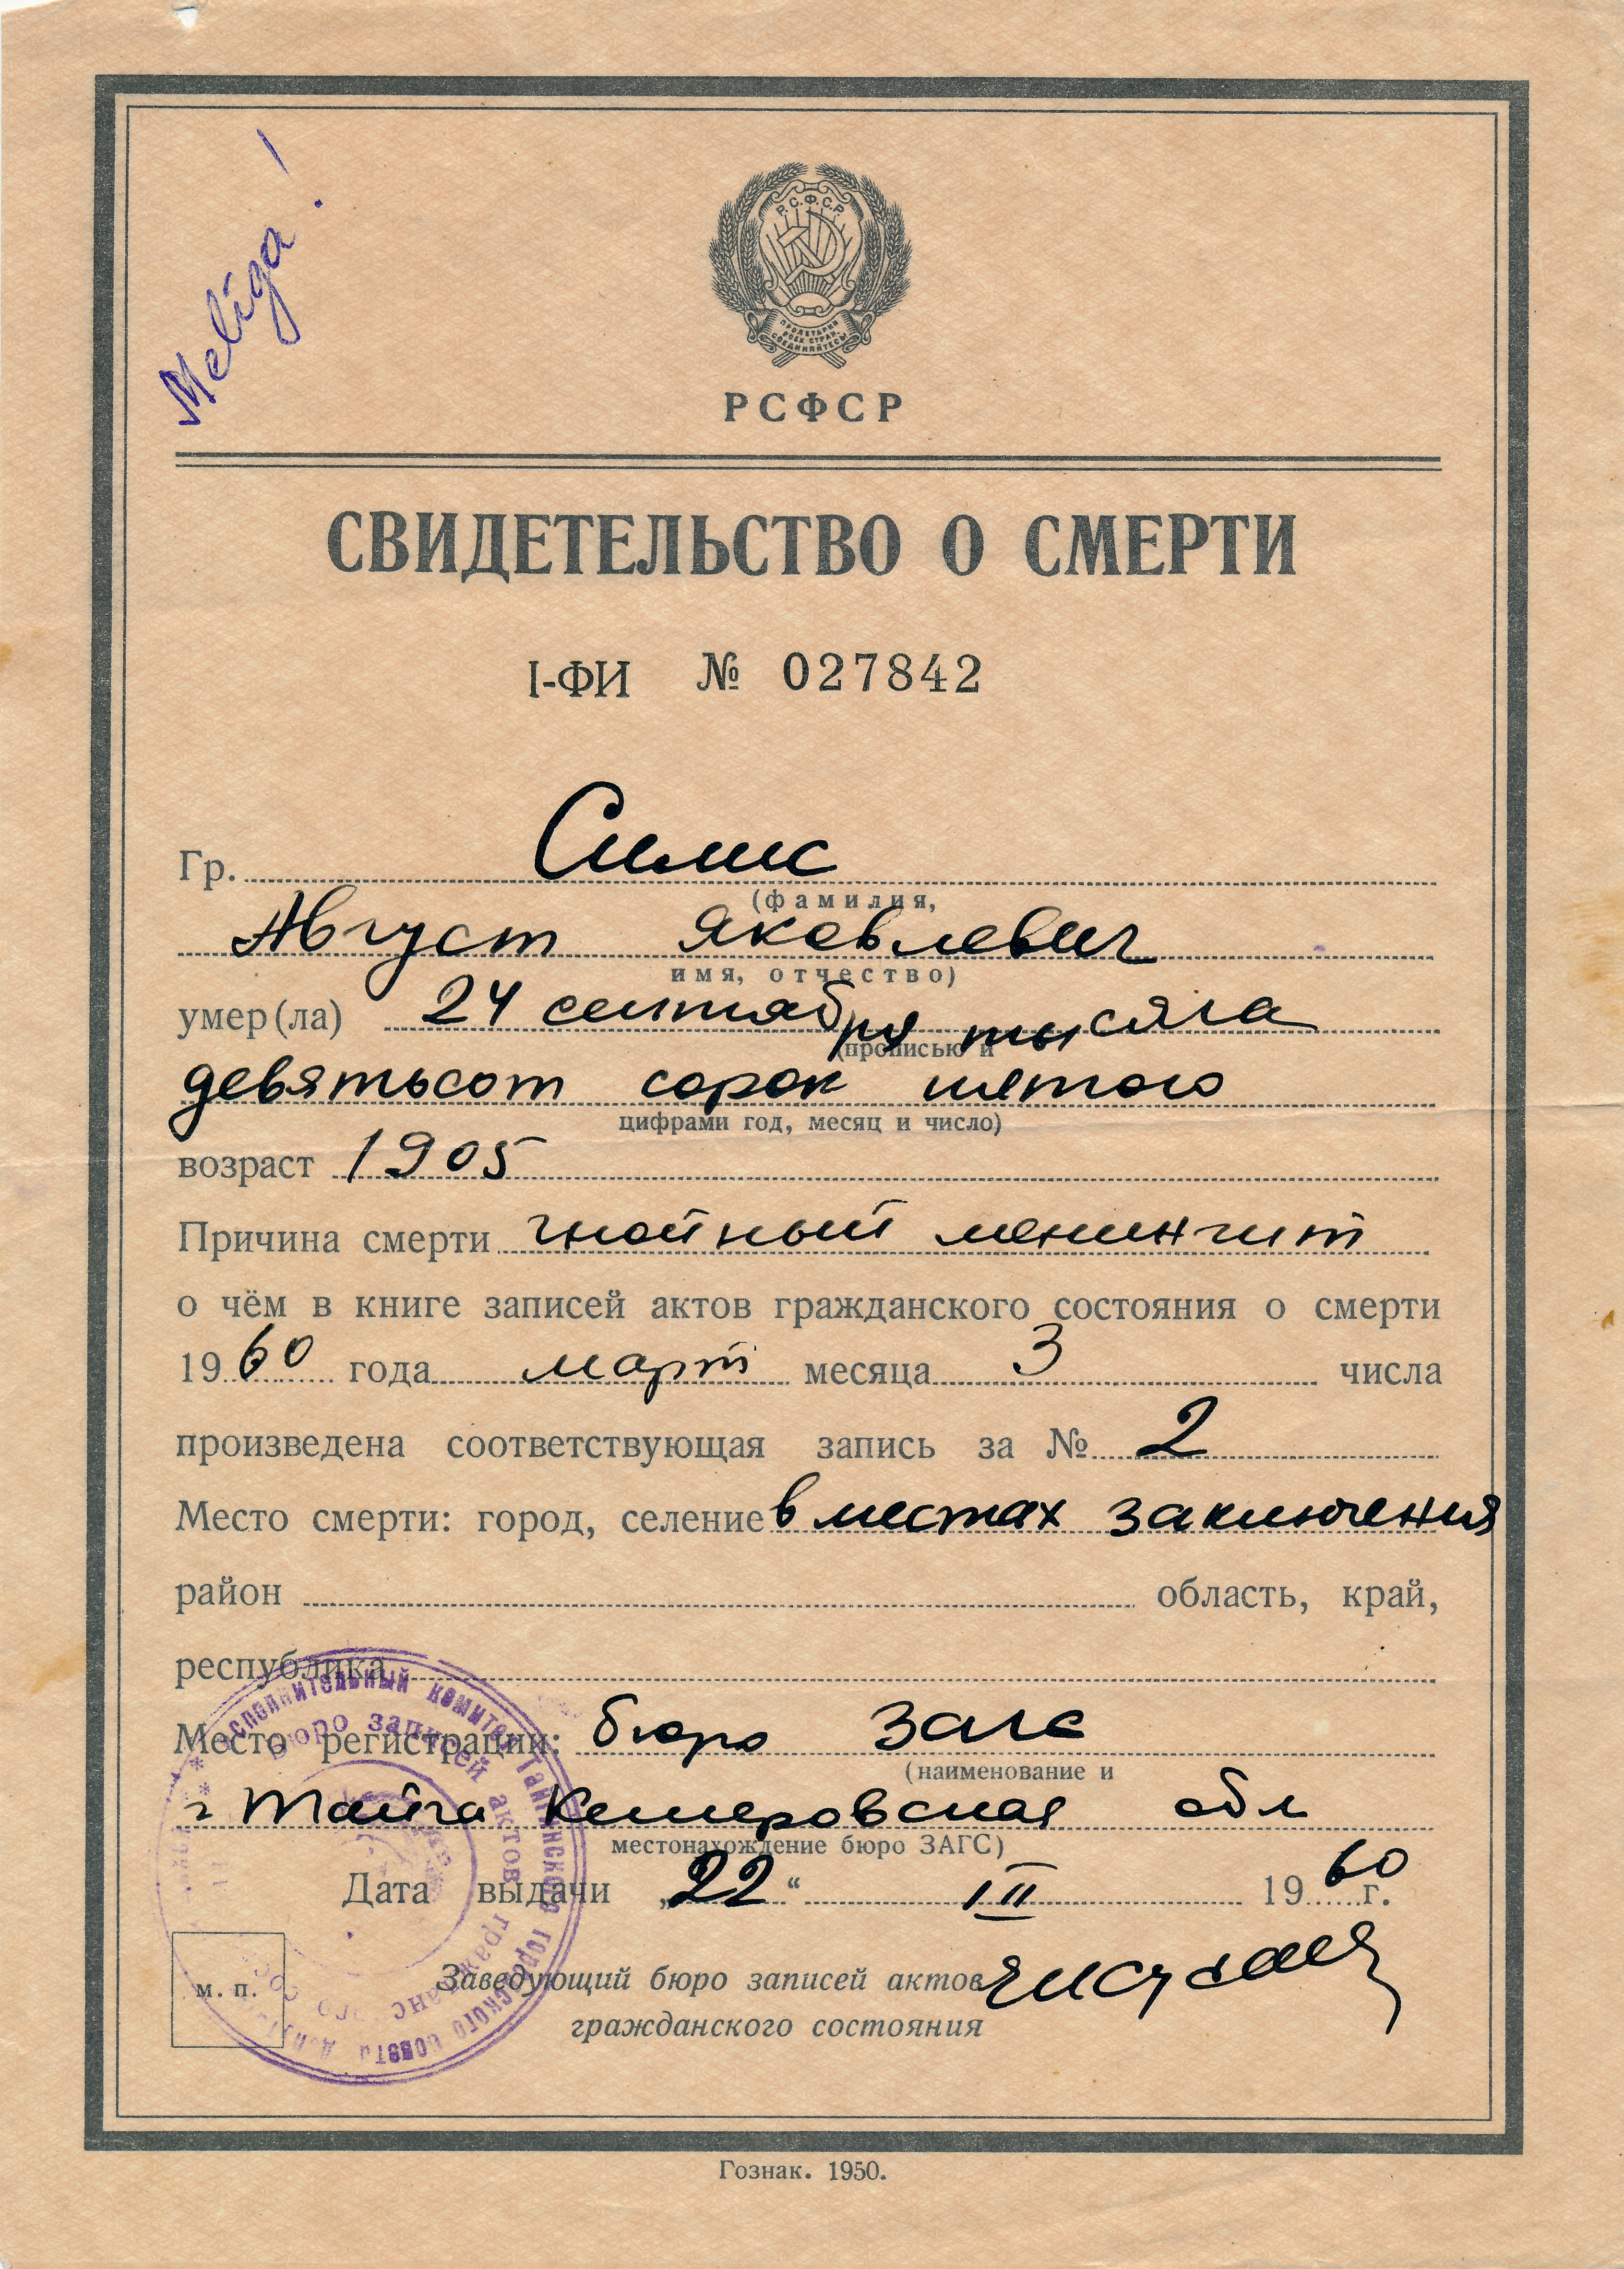 Meliga!
Р.С.Ф.С.Р.
ПРОЛЕТАРИИ
ВСЕХ СТРАН,
СОЕДИНЯЙТЕСЬ!
РСФСР
СВИДЕТЕЛЬСТВО О СМЕРТИ
I-ФИ № 027842
Гр. Силис
(фамилия,
Август Яковлевич
имя, отчество)
умер(ла) 24 сентября тысяча
(прописью и
девятьсот сорок пятого
цифрами год, месяц и число)
возраст 1905
Причина смерти гнойный менингит
о чём в книге записей актов гражданского состояния о смерти
1960 года март месяца 3 числа
произведена соответствующая запись за № 2
Место смерти: город, селение в местах заключения
район область, край,
республика
Место регистрации: бюро загс
(наименование и
г Тайга Кемеровская обл
местонахождение бюро ЗАГС)
Дата выдачи „22“ III 1960 г.
м. п.
Заведующий бюро записей актов
гражданского состояния
Исполнительный комитет Тайгинского городского совета
бюро записей актов гражданс
Гознак. 1950.